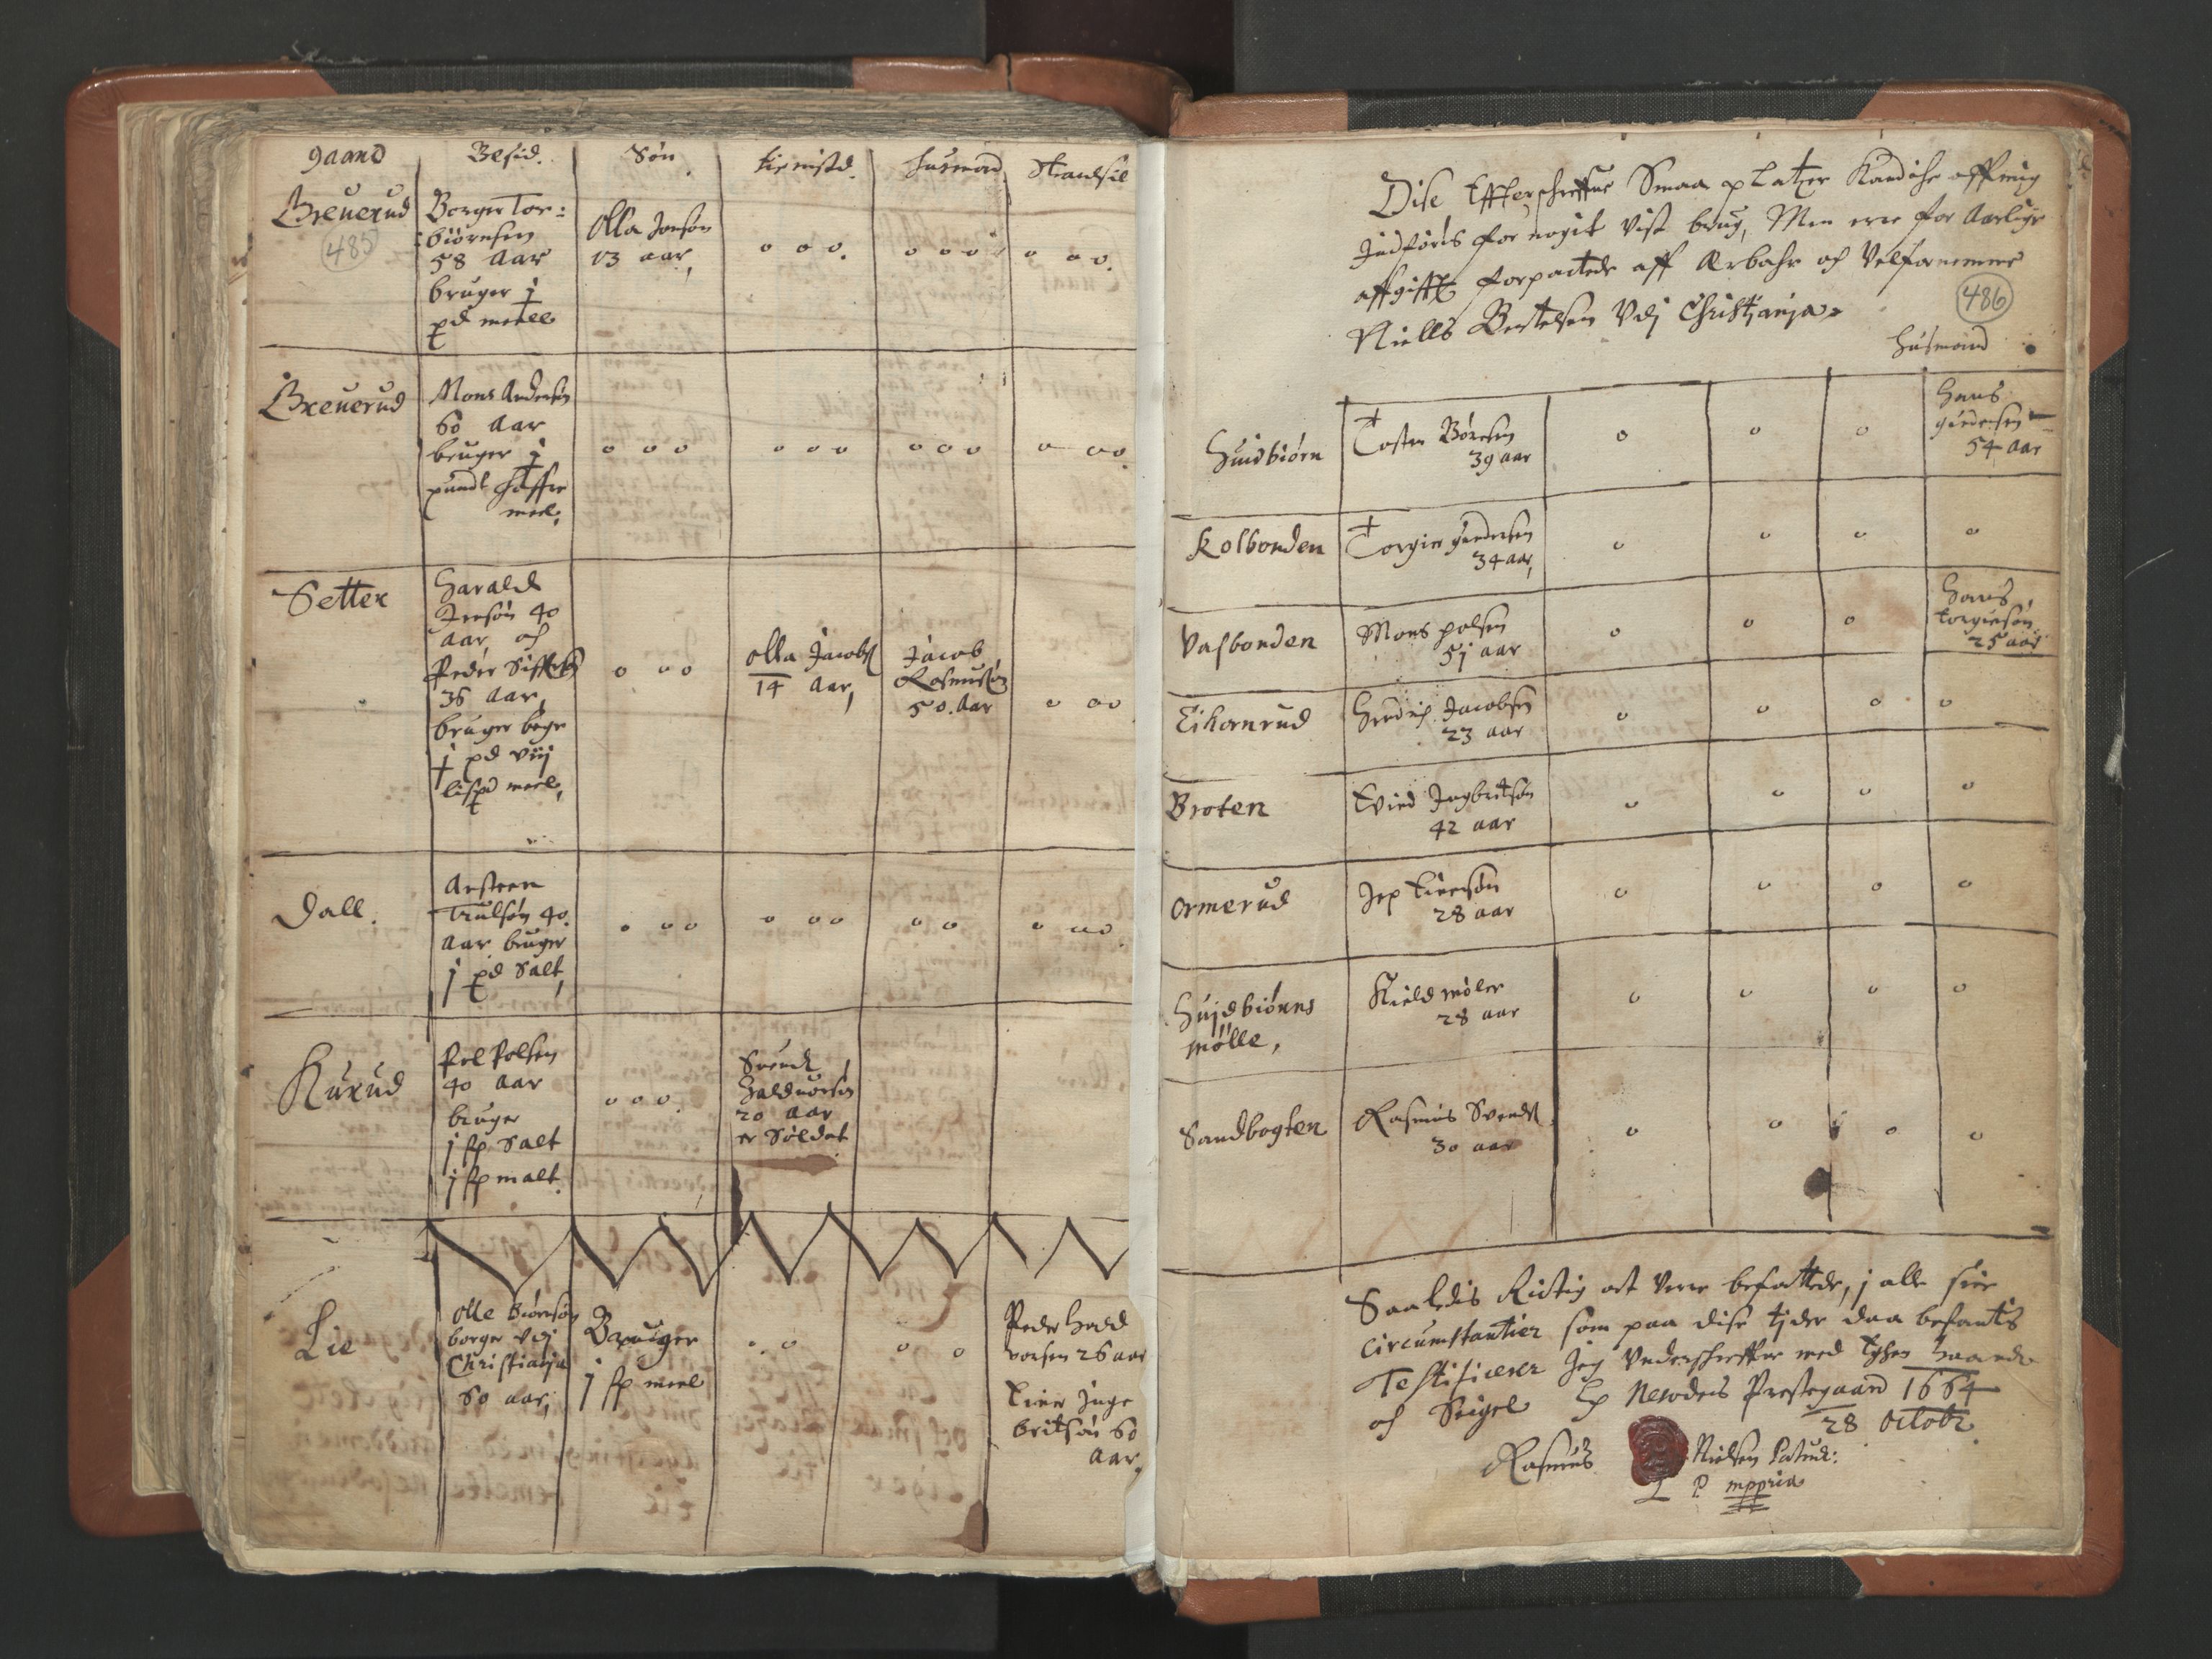 gaard Besid. Søn tienistd. husmand Strandsit
Breuerud
485
Borger Tor:
biørnsen
58 aar
bruger j
pd meell
Olla Jonsøn
13 aar,
o o o. o o o o o o.
Breuerud
Mons Andersøn
60 aar
bruger j
pundt haffre
meel,
o o o o o o o o o o o o.
Setter
Harald
Jensøn 40
aar, och
Peder
36 aar,
bruger
j pd viij
lispd meel,
o o o
olla Jacobs
14 aar,
Jacob
Rasmusøn
50. aar
o o o
Dall.
Arsteen
Trulsøn 40.
aar bruger
j pd salt,
o o o o o o o o o o o.
Kurud
Pol Polsen
40 aar
bruger
j sp salt
j sp malt.
o o o.
Suend
Halduorsen
20 aar
er Soldat
Lie
Olle Biørnsøn
borger vdj
Christianja
60 aar,
Bruger
j sp meel
o o o o
Peder Hald
vorsen 26 aar
Einer Inge
britsøn 60
aar,
Dise Effterschreffne Smaa platzer Kand iche aff mig
Jndføris for nogit vist brug, Men ere for Aarlige
affgifft forpactede aff Ærbahr och Velfornemme
486
Niells Bertelsen Vdj Christianja
husmand
Huidbiørn
Tosten Børesen
39 aar
o o o
Hans
gundersen
54 aar
Kolbonden
Torgier gundersen
34 aar,
o o o o
Vasbonden
Mons polsen
51 aar
o o o
Hans
torgiersøn
25 aar
Eikornrud
Hendrich Jacobsen
23 aar
o o o o
Broten
Evind Ingbritsøn
42 aar
o o o o
Ormerud
Jep Einersøn
28 aar
o o o o
Huidbiørns
mølle,
Kield møler
28 aar
o o o o
Sandbogten
Rasmus Svends
30 aar
o o o o
Saaledis Richtig at vere befattede, j alle sine
circumstantier som paa dise tjder daa befantis
Testificerer Jeg Vnderschreffne med Egen Haand
och Seigel Nesodens Prestegaard 1664
28 octobr.
Rasmus Nielsen
P mppria